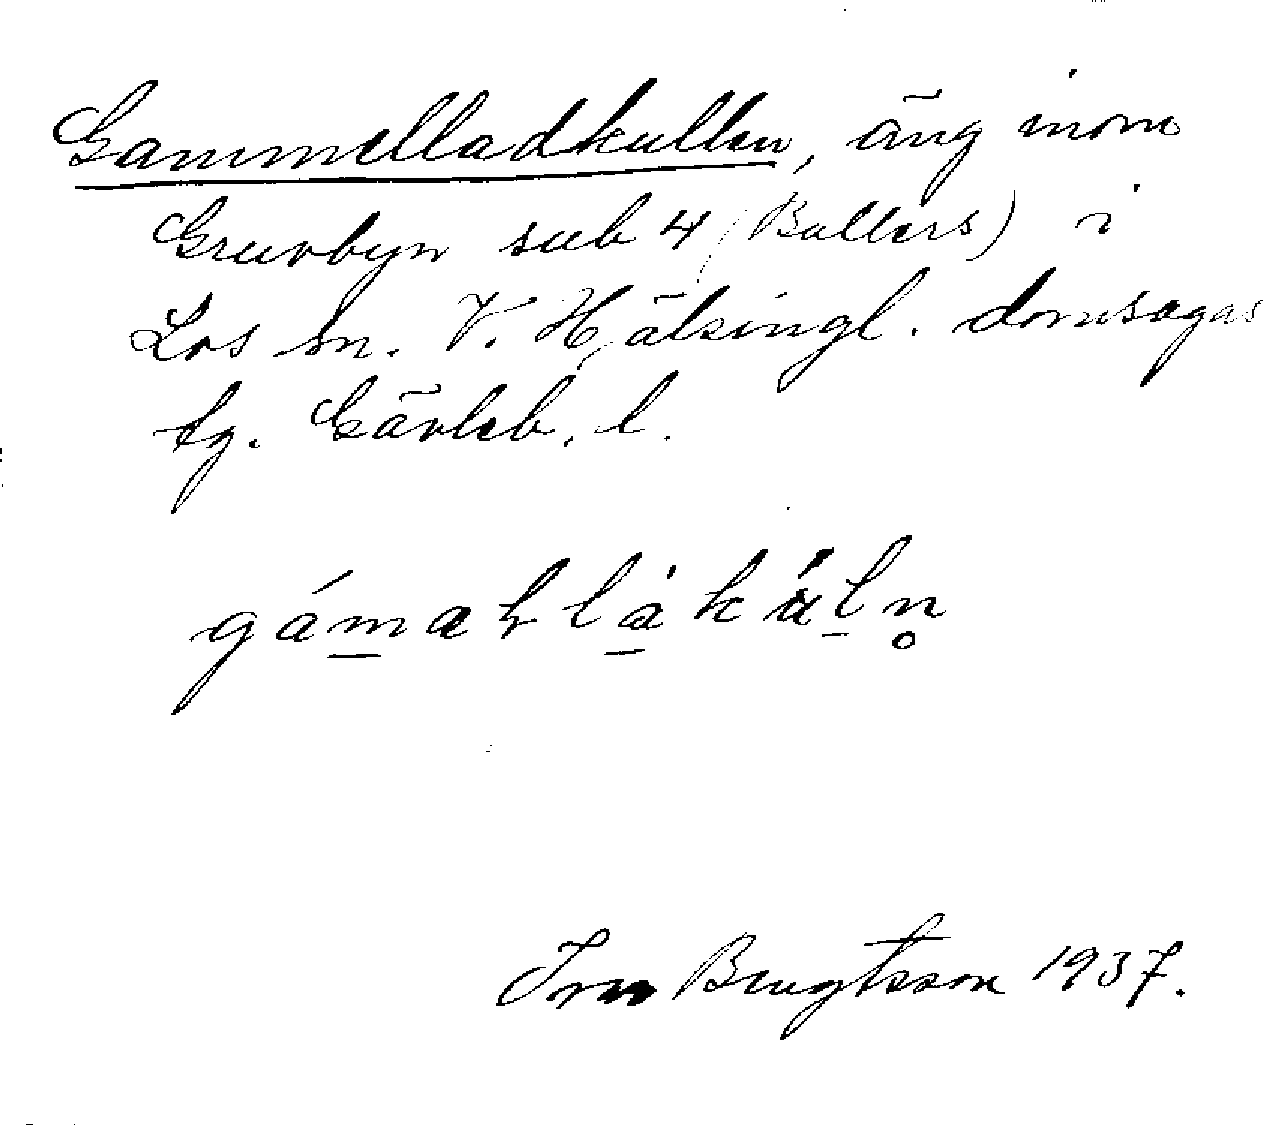 Gammelladkullen, äng inom
Gruvbyn sub 4 (Ballers) i
Los sn. V. Hälsingl. domsagas
tg. Gävleb. l.
gámaḷlàkùln̥
Bengtsson 1937.